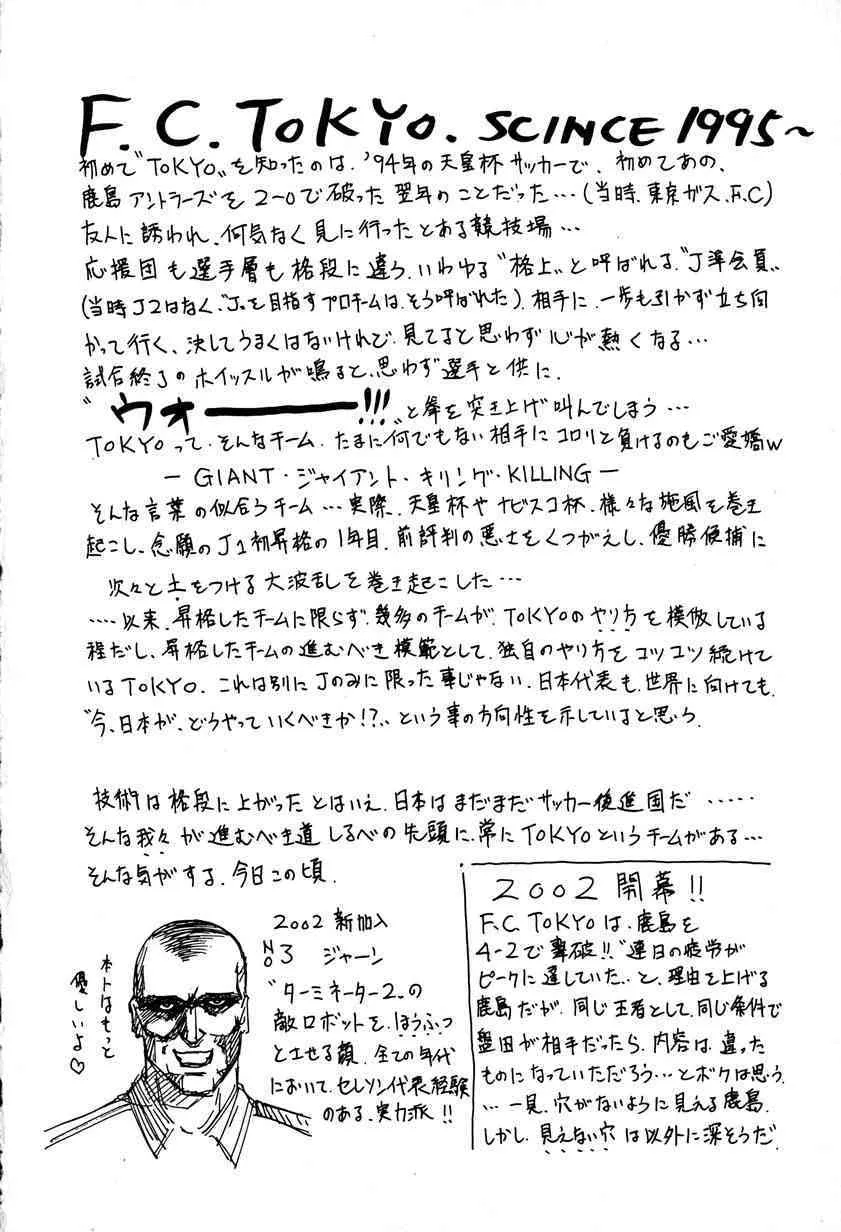 F.C.TOKYO. SCINCE 1995~
初めて"TOKYO"を知ったのは、'94年の天皇杯サッカーで、初めてあの、
鹿島アントラーズを2-0で破った翌年のことだった…(当時、東京ガス、F.C)
友人に誘われ、何気なく見に行ったとある競技場…
応援団も選手層も格段に違う、いわゆる"格上"と呼ばれる"J準会員"
(当時J2はなく、"J"を目指すプロチームは、そう呼ばれた)、相手に、一歩も引かず立ち向
かって行く、決してうまくはないけれど、見てると思わず心が熱くなる…
試合終了のホイッスルが鳴ると、思わず選手と供に、
"ウォーーー!!!"と拳を突き上げ叫んでしまう…
TOKYOって、そんなチーム、たまに何でもない相手にコロリと負けるのもご愛嬌w
―GIANT・ジャイアント・キリング・KILLING―
そんな言葉の似合うチーム…実際、天皇杯やナビスコ杯、様々な旋風を巻き
起こし、念願のJ1初昇格の1年目、前評判の悪さをくつがえし、優勝候補に
次々と土をつける大波乱を巻き起こした…
……以来、昇格したチームに限らず、幾多のチームが、TOKYOのやり方を模倣している
程だし、昇格したチームの進むべき模範として、独自のやり方をコツコツ続けて
いるTOKYO、これは別にJのみに限った事じゃない、日本代表も、世界に向けても、
"今、日本が、どうやっていくべきか!?"という事の方向性を示していると思う、
技術は格段に上がったとはいえ、日本はまだまだサッカー後進国だ……
そんな我々が進むべき道しるべの先頭に、常にTOKYOというチームがある…
そんな気がする、今日この頃、
2002 新加入
No3 ジャーン
"ターミネーター2"の
敵ロボットを、ほうふつ
とさせる顔、全ての年代
において、セレソン代表経験
のある、実力派!!
ホントはもっと
優しいよ♡
2002 開幕!!
F.C.TOKYOは、鹿島を
4-2で撃破!!"連日の疲労が
ピークに達していた"と、理由を上げる
鹿島だが、同じ王者として、同じ条件で
磐田が相手だったら、内容は、違った
ものになっていただろう…とボクは思う、
…一見、穴がないように見える鹿島、
しかし、見えない穴は以外に深そうだ